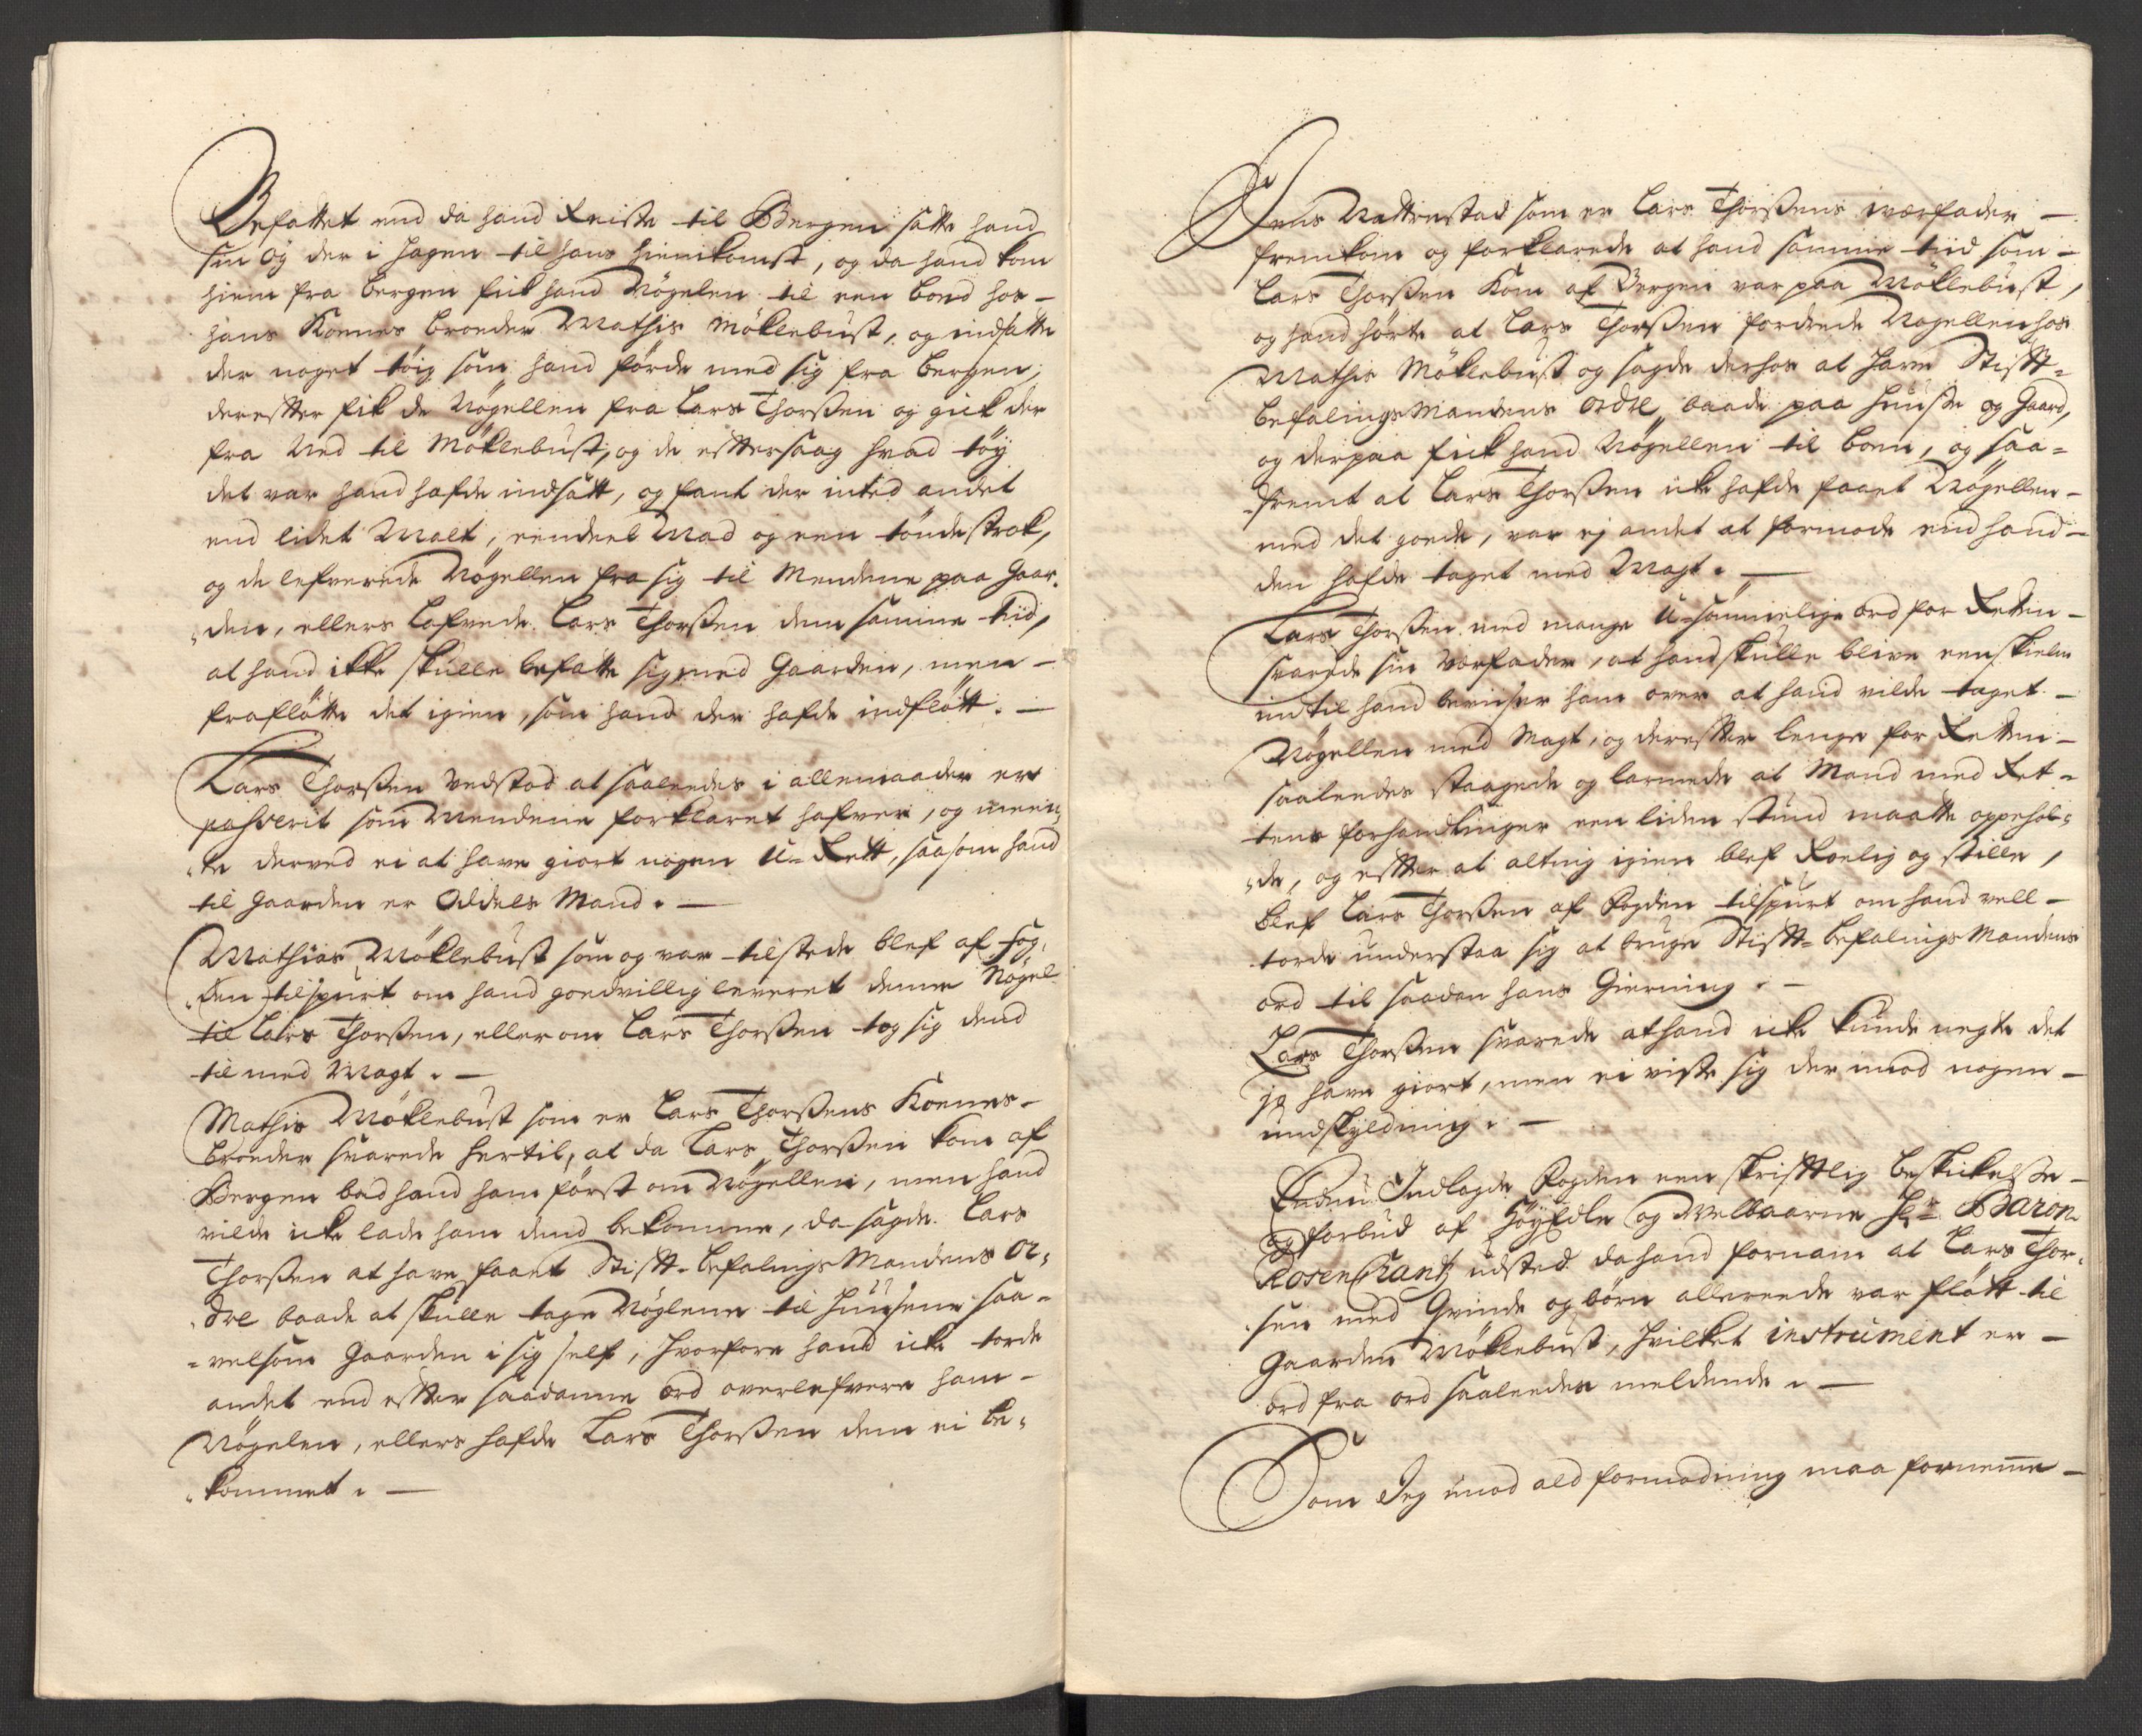 Befattet end da hand Reiste til Bergen satte hand
sin Øÿ der i hagen til hans hiemkomst, og da hand kom
hiem fra bergen fik hand Nögelen til een boed hos -
hans Koenes broeder Mathis Möklebust, og indsatte
der noget töig som hand förde med sig fra bergen,
derefter fik de Nögellen fra Lars Thorßen og gick der
fra Ned til Möklebust, og de eftersaag hvad töÿ
det var hand hafde indsatt, og fant der inted andet
end lidet Malt, eendeel Mad og een tönde strok,
og de lefverede Nögellen fra sig til Mendene paa Gaar-
den, ellers Lofvede Lars Thorßen dem samme tiid,
at hand ikke skulle befatte sig med Gaarden, men -
frafløtte det igien, som hand der hafde indfløtt. -
Lars Thorßen vedstod at saaleedes i allemaader er
passerit som Mendene forklaret hafver, og meen-
te derved ei at have giort nogen U-Rett, saasom hand
til gaarden er Oddels Mand. -
Mathias Möklebust som og var tilstede blef af Fog-
den tilspurt om hand goedvillig leveret denne Nögel
til Lars Thorßen, eller om Lars Thorßen tog sig dend
til med Magt. -
Mathis Möklebust som er Lars Thorßens Koenes-
broeder svarede hertil, at da Lars Thorßen kom af
Bergen bad hand ham först om Nögellen, men hand
vilde icke lade ham dend bekomme, da sagde Lars
Thorßen at have faaet Stift-befalings Mandens Or-
dre baade at skulle tage Nöglene til huusene saa-
velsom Gaarden i sig self, hvorfore hand icke torde
andet end efter saadanne ord overlefvere ham -
Nögelen, ellers hafde Lars Thorßen dem ei be-
kommet. -
Jens Nattvestad som er Lars Thorßens værfader -
fremkom og forklarede at hand samme tiid som -
Lars Thorßen Kom af Bergen var paa Möklebust,
og hand hörte at Lars Thorßen fordrede Nøgellen hos
Mathis Möklebust og sagde derhos at have Stift-
befalings Mandens ordre baade paa huuse og Gaard,
og derpaa fick hand Nögellen til boen, og saa-
fremt at Lars Thorßen icke hafde faaet Nögellen -
med det goede, var ej andet at formode end hand -
den hafde taget med Magt. -
Lars Thorßen med mange U-sømmelige ord for Retten -
svarede sin Værfader, at hand skulle blive een skielm
indtil hand beviiser ham over at hand vilde taget -
Nögellen med Magt, og derefter lenge for Retten -
saaleedes staagede og larmede at Mand med Ret-
tens forhandlinger een liden stund maatte oppehol-
de, og efter at alting igien blef Roelig og stille,
blef Lars Thorßen af Fogden tilspurt om hand vell -
torde understaa sig at bruge Stift-befalings Mandens
ord til saadan hans Gierning. -
Lars Thorßen svarede at hand icke kunde negte det
jo have giort, men ei viste sig der imod nogen -
undskyldning. -
Endnu Indlagde Fogden een skriftlig beskickelße -
og forbud af Höÿædle og Velbaarne Hr. Baron
RosenCrantz udsted da hand fornam at Lars Thor-
sen med Qvinde og børn allereede var fløtt til
Gaarden Möklebust, hvilket instrument er -
ord fra ord saaleedes meldende. -
Som Jeg imod ald formodning maa fornemme -